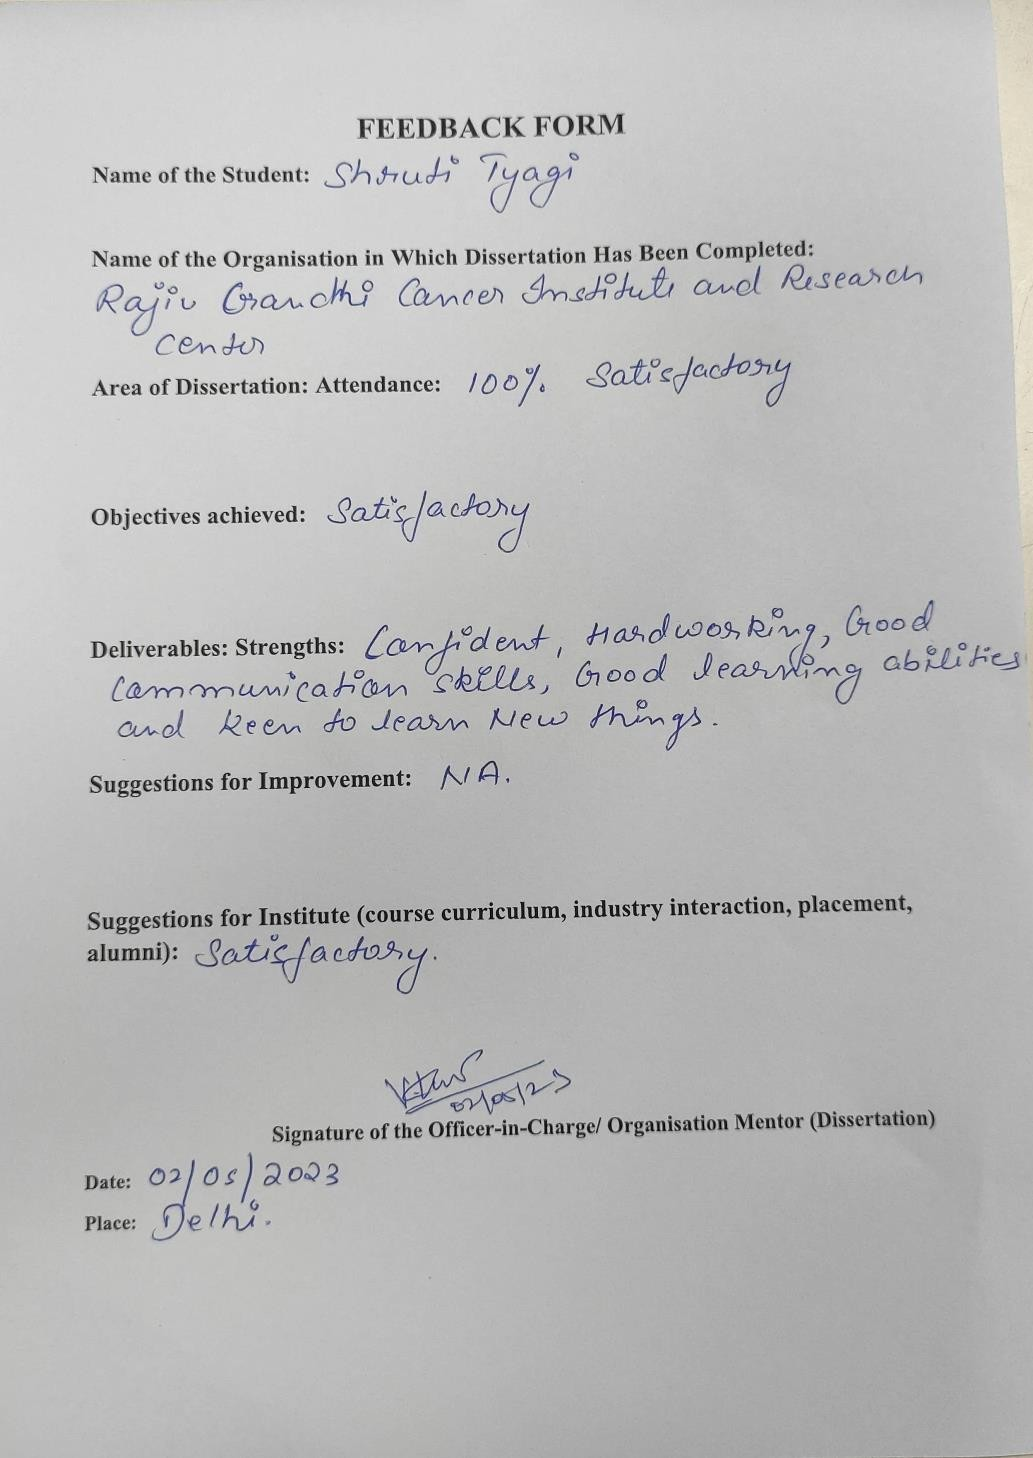 FEEDBACK FORM
Name of the Student: Shruti Tyagi
Name of the Organisation in Which Dissertation Has Been Completed:
Rajiv Gandhi Cancer Institute and Research
Center
Area of Dissertation: Attendance: 100% Satisfactory
Objectives achieved: Satisfactory
Deliverables: Strengths: Confident, Hardworking, Good
communication skills, Good learning abilities
and keen to learn New things.
Suggestions for Improvement: NA.
Suggestions for Institute (course curriculum, industry interaction, placement,
alumni): Satisfactory.
02/05/23
Signature of the Officer-in-Charge/ Organisation Mentor (Dissertation)
Date: 02/05/2023
Place: Delhi.